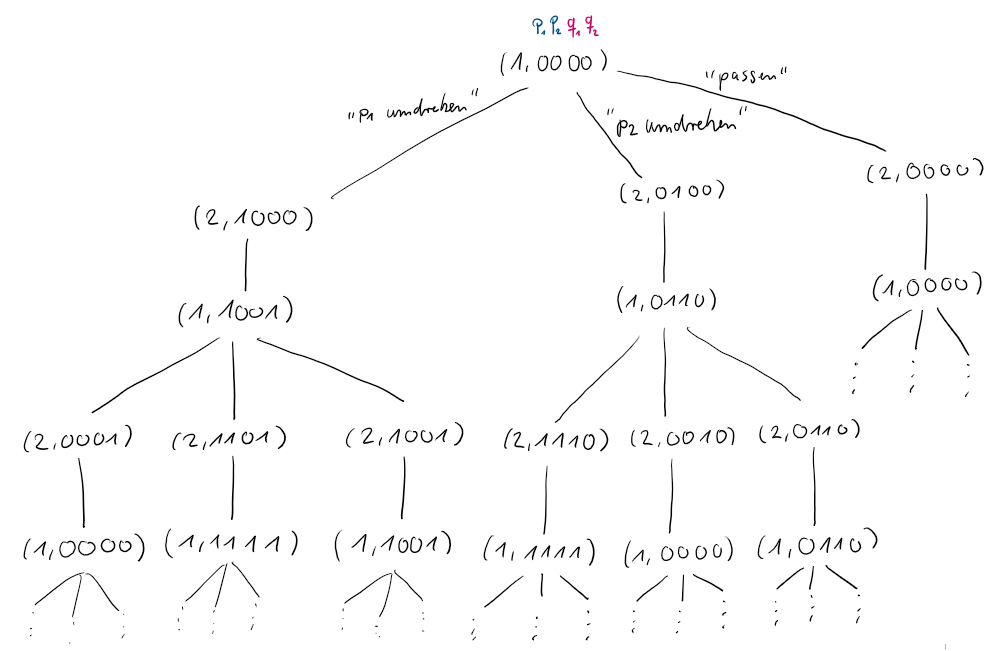 P₁ P₂ q₁ q₂
(1,0000)
"P1 umdrehen"
"P2 umdrehen"
"passen"
(2,1000)
(2,0100)
(2,0000)
(1,1001)
(1,0110)
(1,0000)
(2,0001) (2,1101) (2,1001) (2,1110) (2,0010) (2,0110)
(1,0000) (1,1111) (1,1001) (1,1111) (1,0000) (1,0110)